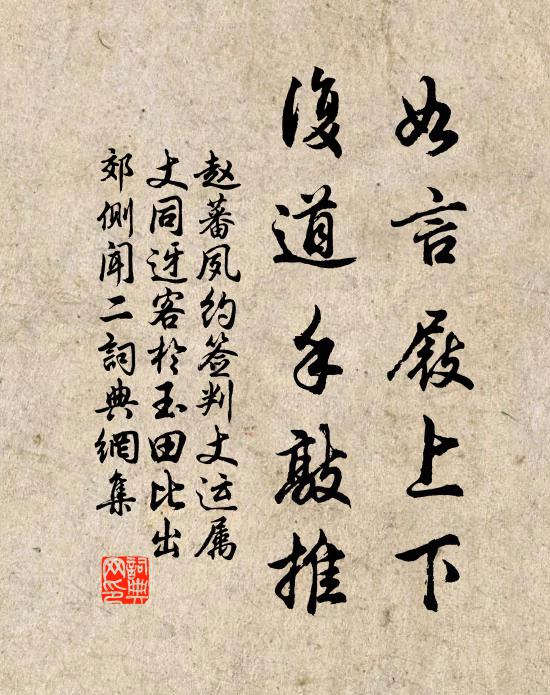 如言屐上下
復道手敲推
赵蕃夙约签判丈运属
丈同迓客於玉田比出
郊侧闻二詞典網集
詞典网印